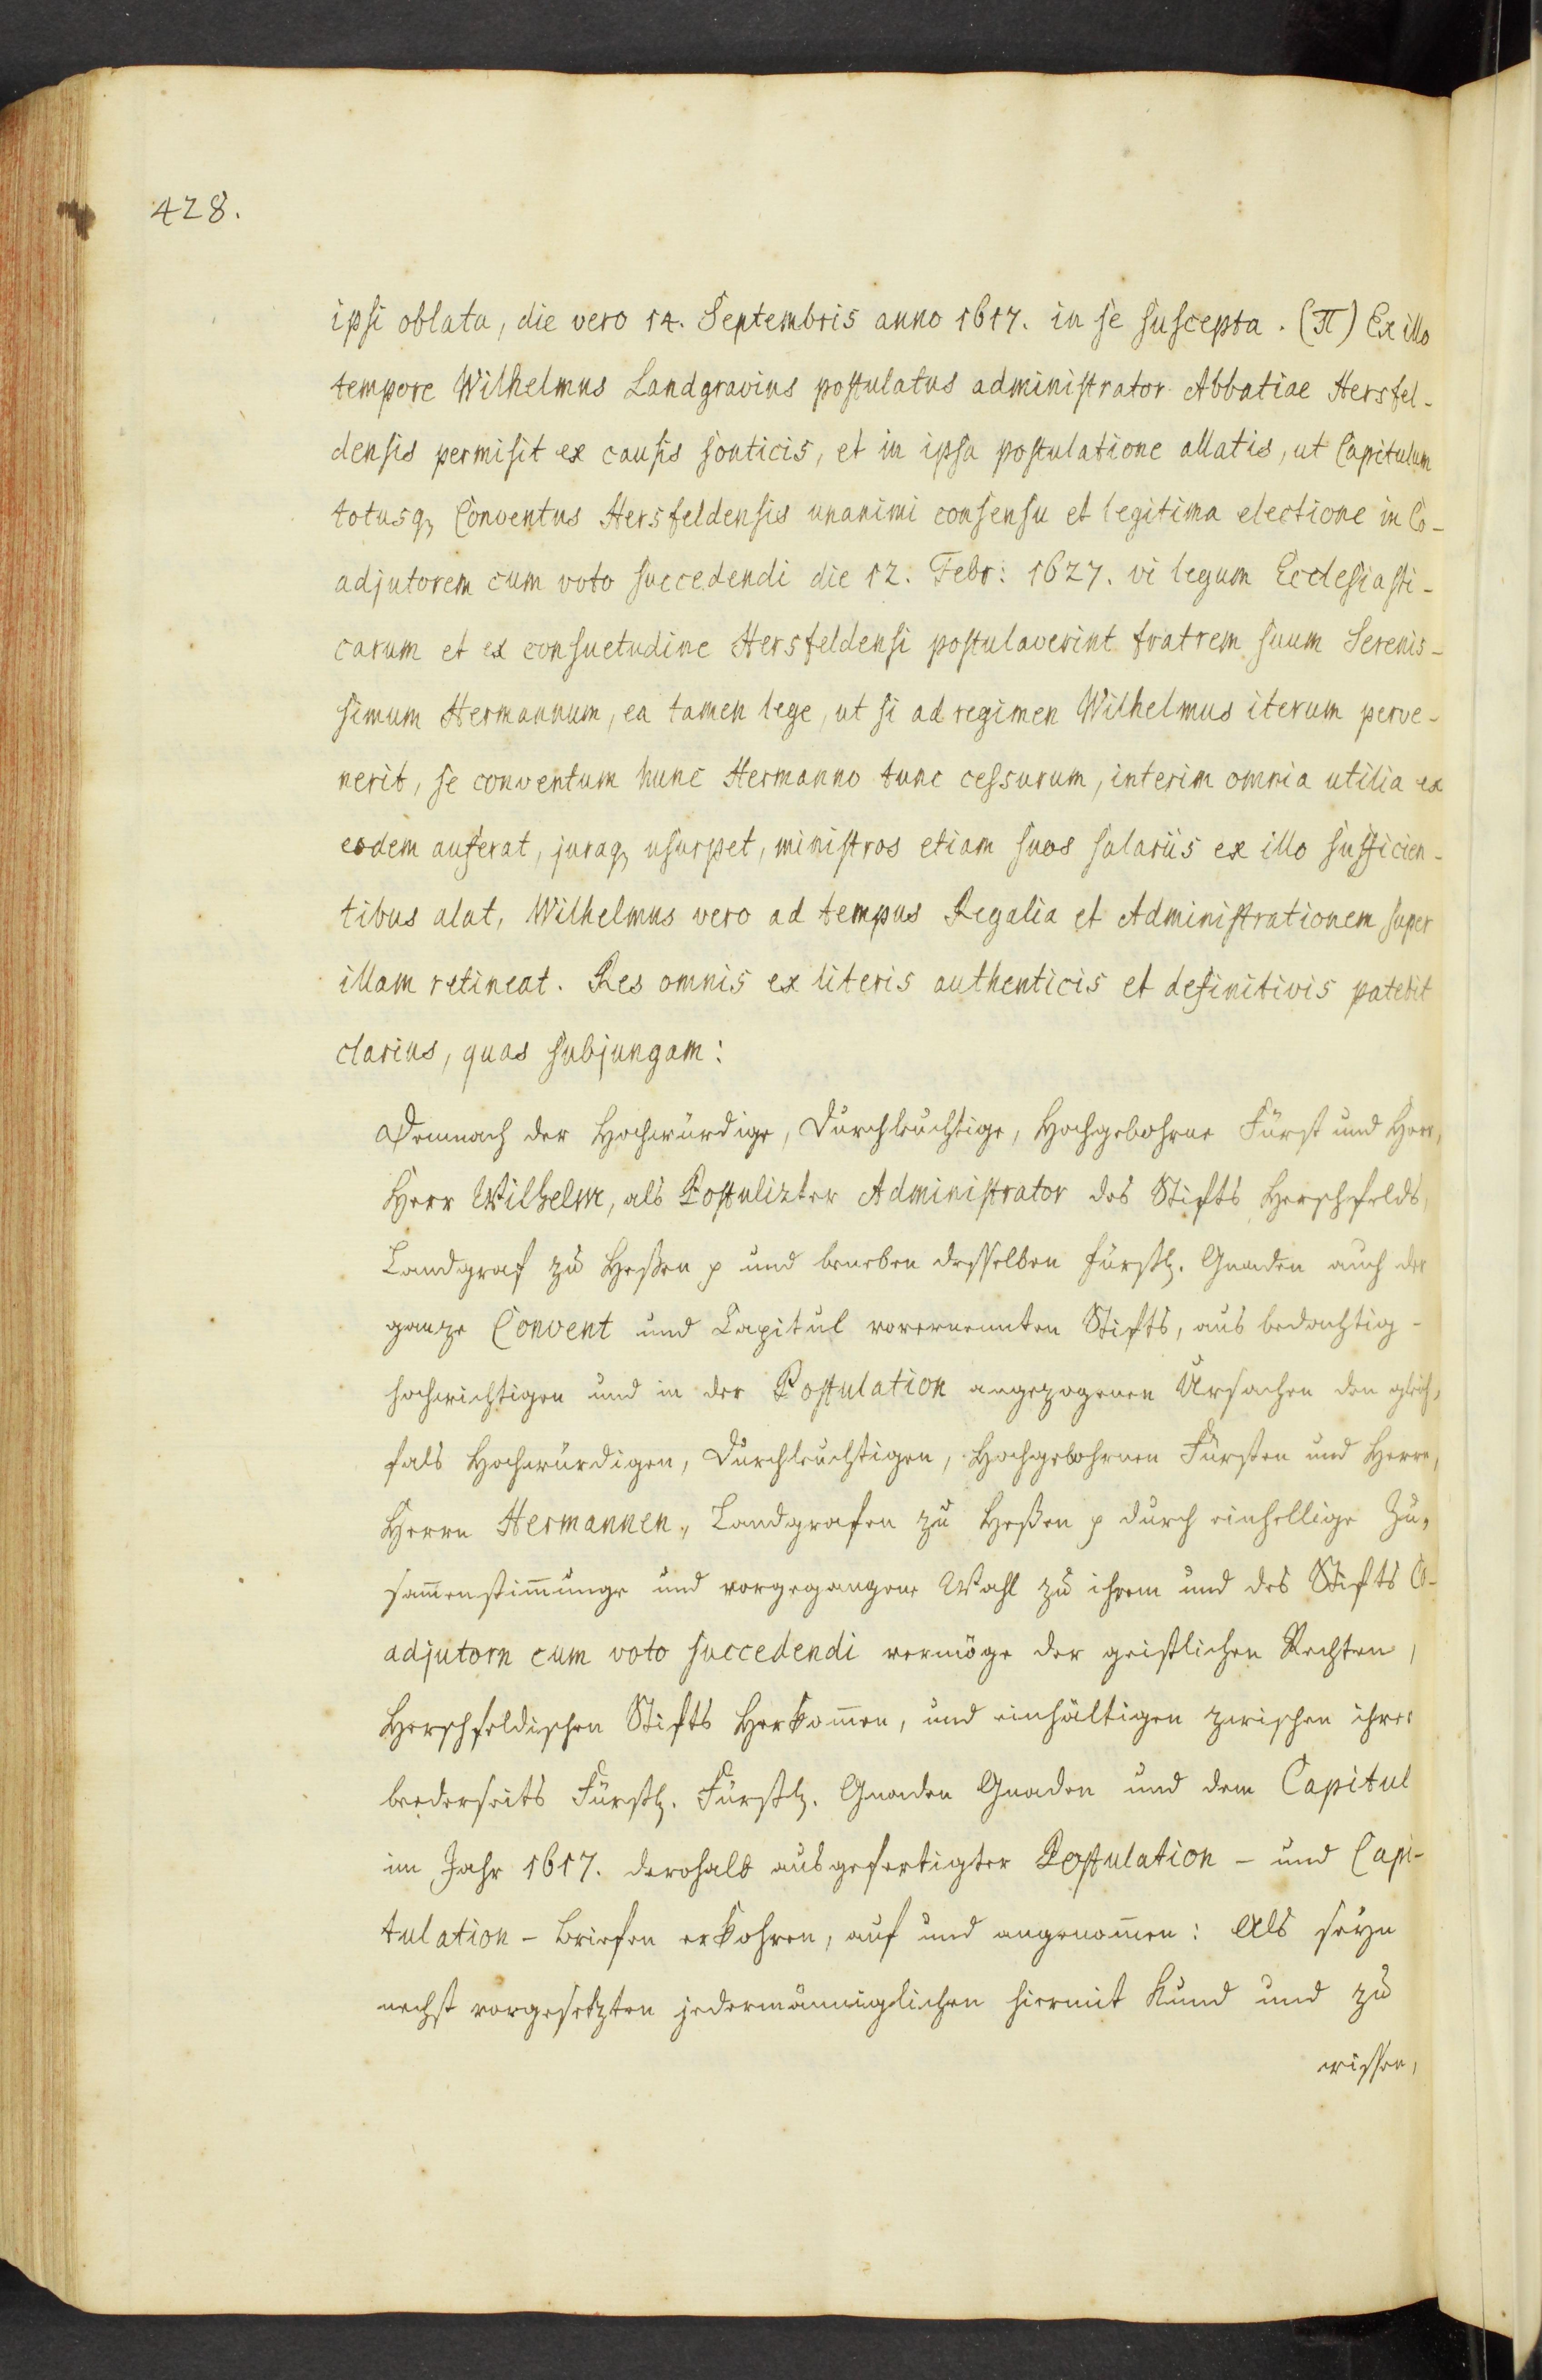 428.
ipsi oblata, die vero 14. Septembris anno 1617. in se suscepta. (π) Ex illo
tempore Wilhelmus Landgravius postulatus administrator Abbatiae Hersfel-
densis permisit ex causis sonticis, et in ipsa postulatione allatis, ut Capitulum
totusq, Conventus Hersfeldensis unanimi consensu et legitima electione in Co-
adjutorem cum voto succedendi die 12. Febr: 1627. vi legum Ecclesiasti-
carum et ex consuetudine Hersfeldensi postulaverint fratrem suum Serenis-
simum Hermannum, ea tamen lege, ut si ad regimen Wilhelmus iterum perve-
nerit, se conventum hunc Hermanno tunc cessurum, interim omnia utilia ex
eodem auferat, juraq, usurpet, ministros etiam suos salariis ex illo sufficien-
tibus alat, Wilhelmus vero ad tempus Regalia et Administrationem super
illam retineat. Res omnis ex literis authenticis et definitivis patebit
clarius, quas subjungam:
Demnach der Hochwürdige, Durchleuchtige, Hochgebohrne Fürst und Herr,
Herr Wilhelm, als Postulirter Administrator des Stifts Herschfelds,
Landgraf zu Heßen p und beneben desselben fürstl. Gnaden auch der
ganze Convent und Capitul vorernennten Stifts, aus bedachtig-
hochwichtigen und in der Postulation angezogenen Ursachen den gleich,
fals Hochwürdigen, Durchleuchtigen, Hochgebohrnen Fürsten und Herrn,
Herrn Hermannen, Landgrafen zu Heßen p durch einhellige Zu,
sam̄enstim̄unge und vorgegangene Wahl zu ihrem und des Stifts Co-
adjutorn cum voto succedendi vermöge der geistlichen Rechten,
Herschfeldischen Stifts Herkom̄en, und einhältigen zwischen ihrer
beederseits Fürstl. Fürstl. Gnaden Gnaden und dem Capitul
im Jahr 1617. derohalb ausgefertigter Postulation - und Capi-
tulation - Briefen erkohren, auf und angenom̄en: Als seyn
nechst vorgesetzten jedermänniglichen hiermit kund und zu
wissen,